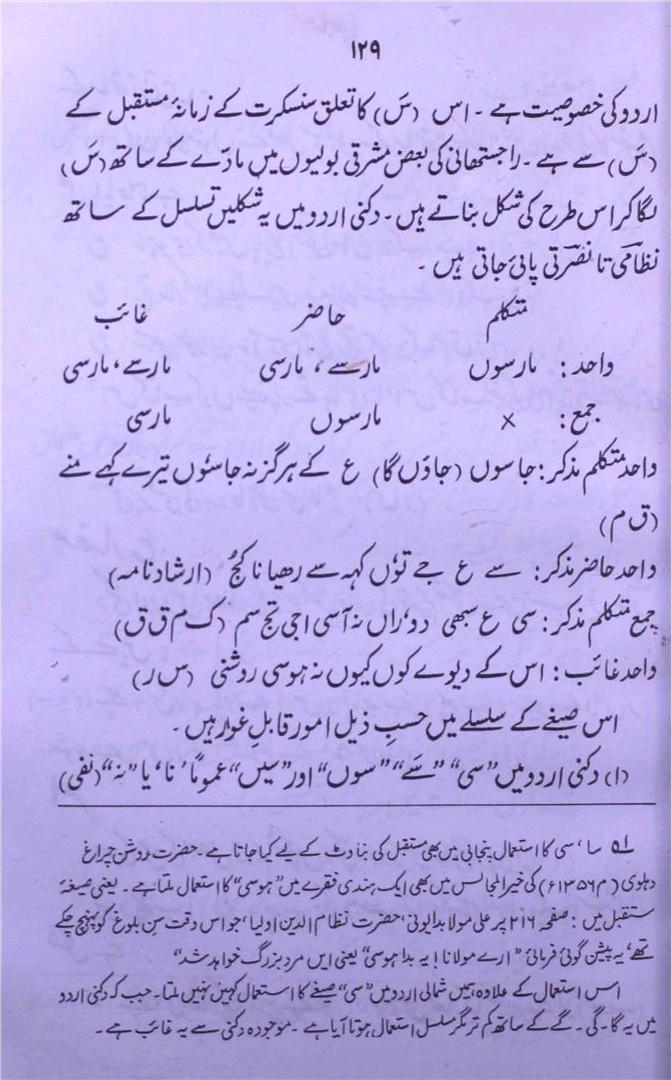 ۱۲۹
اردو کی خصوصیت ہے ۔ اس (سَ) کا تعلق سنسکرت کے زمانۂ مستقبل کے
(سَ) سے ہے ۔ راجستھانی کی بعض مشرقی بولیوں میں مادّے کے ساتھ (سَ)
لگا کر اس طرح کی شکل بناتے ہیں ۔ دکنی اردو میں یہ شکلیں تسلسل کے ساتھ
نظامی تا نصرتی پائی جاتی ہیں ۔
متکلم حاضر غائب
واحد : مارسوں مارسے ، مارسی مارسے ، مارسی
جمع : × مارسوں مارسی
واحد متکلم مذکر : جاسوں (جاوٗں گا) ع کے ہرگز نہ جاسوٗں تیرے کہے منے
(ق م)
واحد حاضر مذکر : سے ع جے توٗں کہہ سے رھیا نا کُچ (ارشاد نامہ)
جمع متکلم مذکر : سی ع سبھی دوٗراں نہ آسی اجی تج سم (ک م ق ق)
واحد غائب : اس کے دیوے کوں کیوں نہ ہوسی روشنی (س ر)
اس صیغے کے سلسلے میں حسبِ ذیل امور قابلِ غور ہیں ۔
(۱) دکنی اردو میں ”سی“ ”سے“ ”سوں“ اور ”سیں“ عموماً ’نا‘ یا ”نہ“ (نفی)
؎۱ سا ، سی کا استعمال پنجابی میں بھی مستقبل کی بناوٹ کے لیے کیا جاتا ہے ۔ حضرت روشن چراغ
دہلوی (م ۱۳۵۶ء) کی خیر المجالس میں بھی ایک ہندی فقرے میں ”ہوسی“ کا استعمال ملتا ہے ۔ یعنی صیغۂ
مستقبل میں : صفحہ ۲۱۶ پر علی مولا بدایونی ، حضرت نظام الدین اولیا ، جو اس وقت سنِ بلوغ کو پہنچ چکے
تھے ، یہ پیشن گوئی فرمائی ”ارے مولانا ! یہ بڈا ہوسی“ یعنی ایں مرد بزرگ خواہد شد“
اس استعمال کے علاوہ ہمیں شمالی اردو میں ”سی“ صیغے کا استعمال کہیں نہیں ملتا ۔ جب کہ دکنی اردو
میں یہ گا ۔ گی ۔ گے کے ساتھ کم تر مگر مسلسل استعمال ہوتا آیا ہے ۔ موجودہ دکنی سے یہ غائب ہے ۔